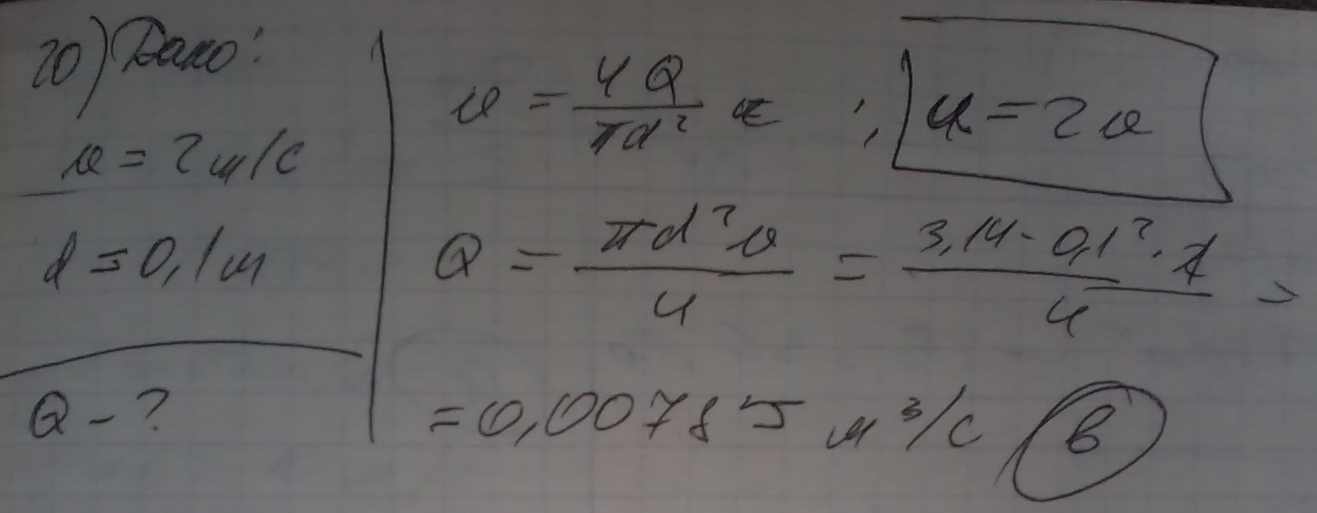 20) Дано:
υ = 2 м/с
d = 0,1 м
Q - ?
υ = 4Q / πd² ; u = 2υ
Q = πd²υ / 4 = 3,14 · 0,1² · 1 / 4 =
= 0,00785 м³/с в